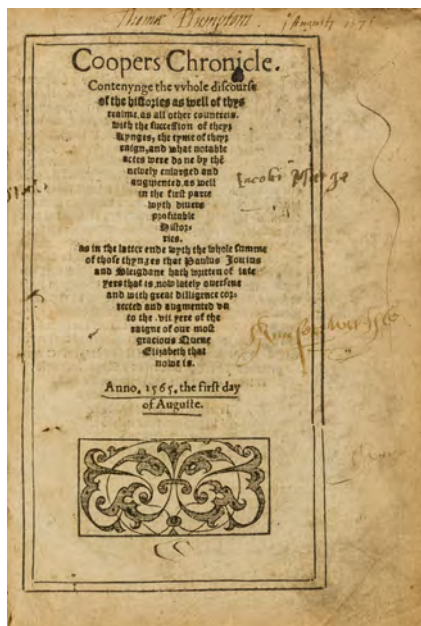 Thomas Plumpton. j August 157
Coopers Chronicle.
Contenynge the vvhole discourse
of the histories as well of thys
realme, as all other countreis.
with the succession of theyr
kynges, the tyme of theyr
raign, and what notable
actes were done by thē
newely enlarged and
augmented, as well
in the first parte
wyth divers
profitable
Histor-
ries.
as in the latter ende wyth the whole summe
of those thynges that Paulus Jovius
and Sleigdane hath written of late
yers that is, now lately oversene
and with great dilligence cor-
rected and augmented vn
to the .vii yere of the
raigne of our most
gracious Quene
Elizabeth that
nowe is.
Anno. 1565. the first day
of Auguste.